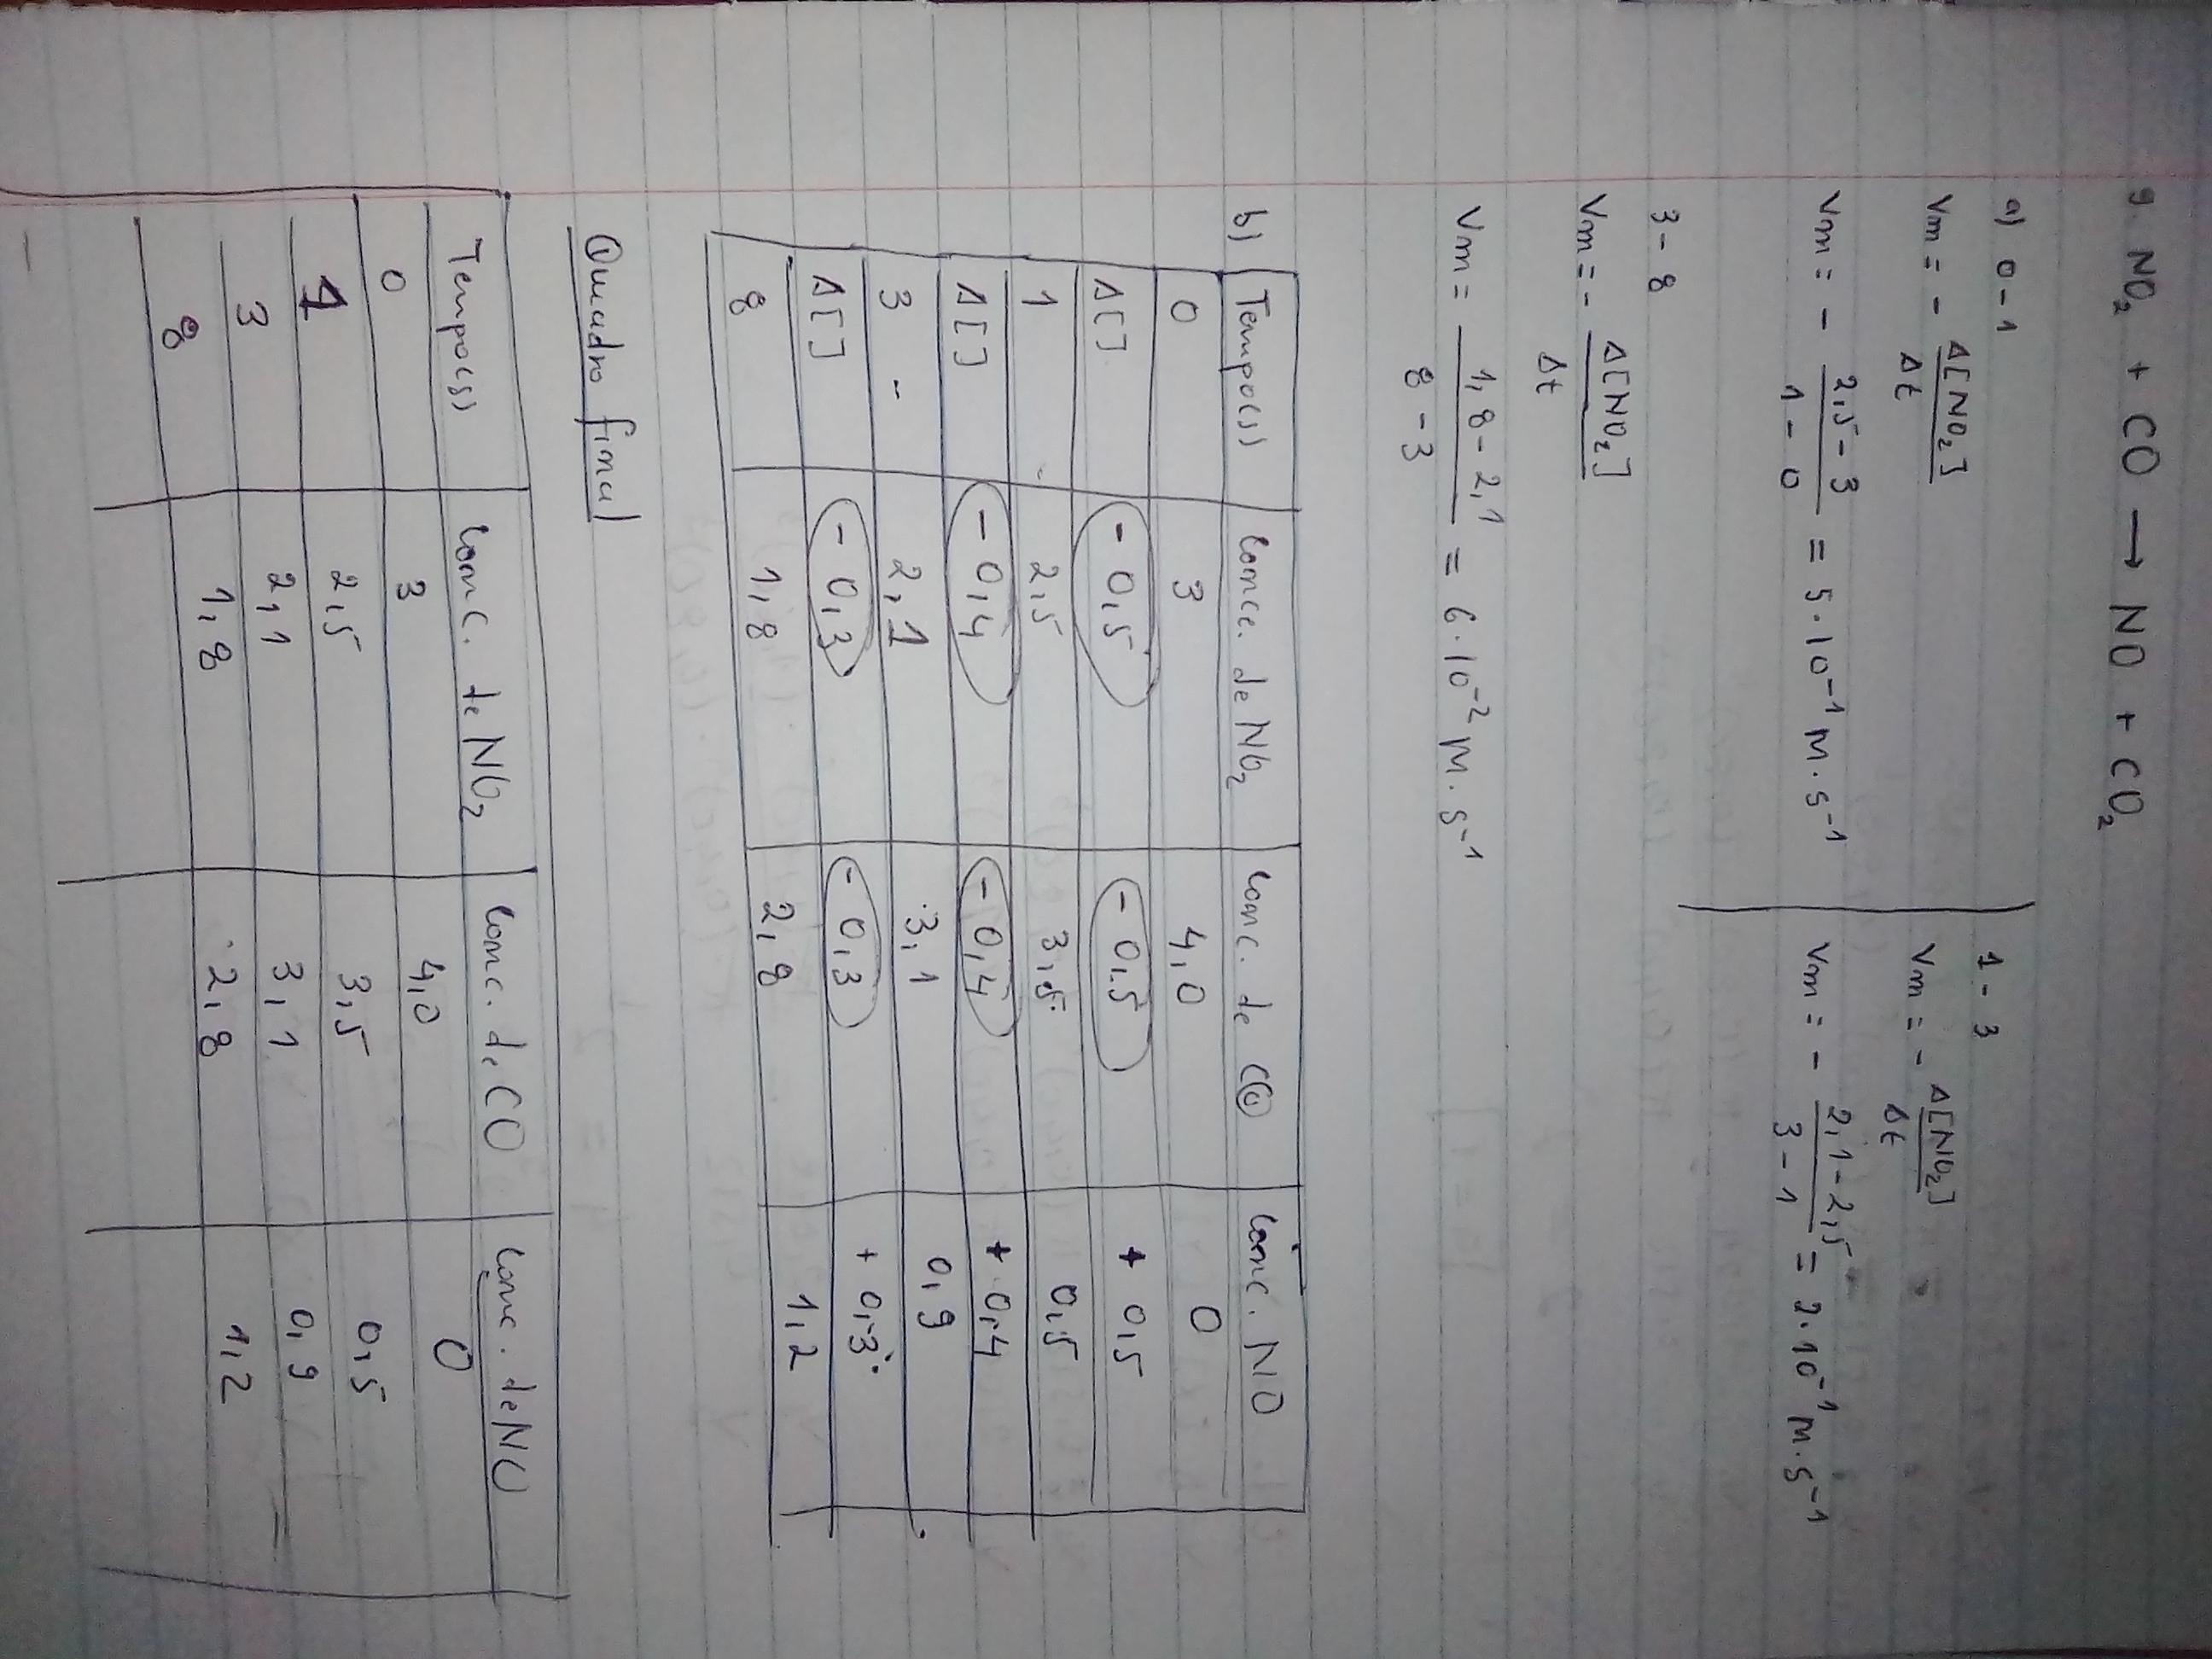 9. NO₂ + CO → NO + CO₂
a) 0 - 1
Vm = - Δ[NO₂]
Δt
Vm = - 2,5 - 3 = 5 · 10⁻¹ M · s⁻¹
1 - 0
1 - 3
Vm = - Δ[NO₂]
Δt
Vm = - 2,1 - 2,5 = 2 · 10⁻¹ M · s⁻¹
3 - 1
3 - 8
Vm = - Δ[NO₂]
Δt
Vm = 1,8 - 2,1 = 6 · 10⁻² M · s⁻¹
8 - 3
b) Tempo(s) Conce. de NO₂ Conc. de CO Conc. NO
0 3 4,0 0
Δ[] - 0,5 - 0,5 + 0,5
1 2,5 3,5 0,5
Δ[] - 0,4 - 0,4 + 0,4
3 - 2,1 3,1 0,9
Δ[] - 0,3 - 0,3 + 0,3
8 1,8 2,8 1,2
Quadro final
Tempo(s) Conc. de NO₂ Conc. de CO Conc. de NO
0 3 4,0 0
1 2,5 3,5 0,5
3 2,1 3,1 0,9
8 1,8 2,8 1,2